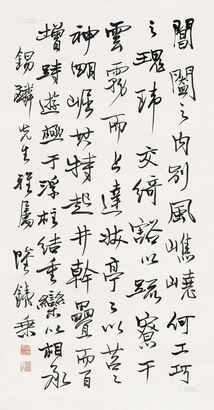 閶闔之內別風嶕嶢何工巧
之瑰瑋交綺豁以疏寮干
雲霧而上達狀亭々以苕々
神明崛其特起井幹疊而百
增跱遊極于浮柱結重欒以相承
錫麟先生雅屬